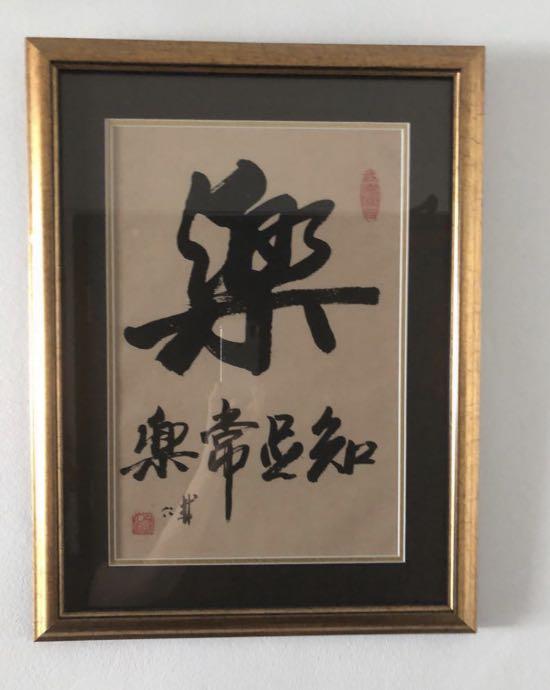 樂
知足常樂